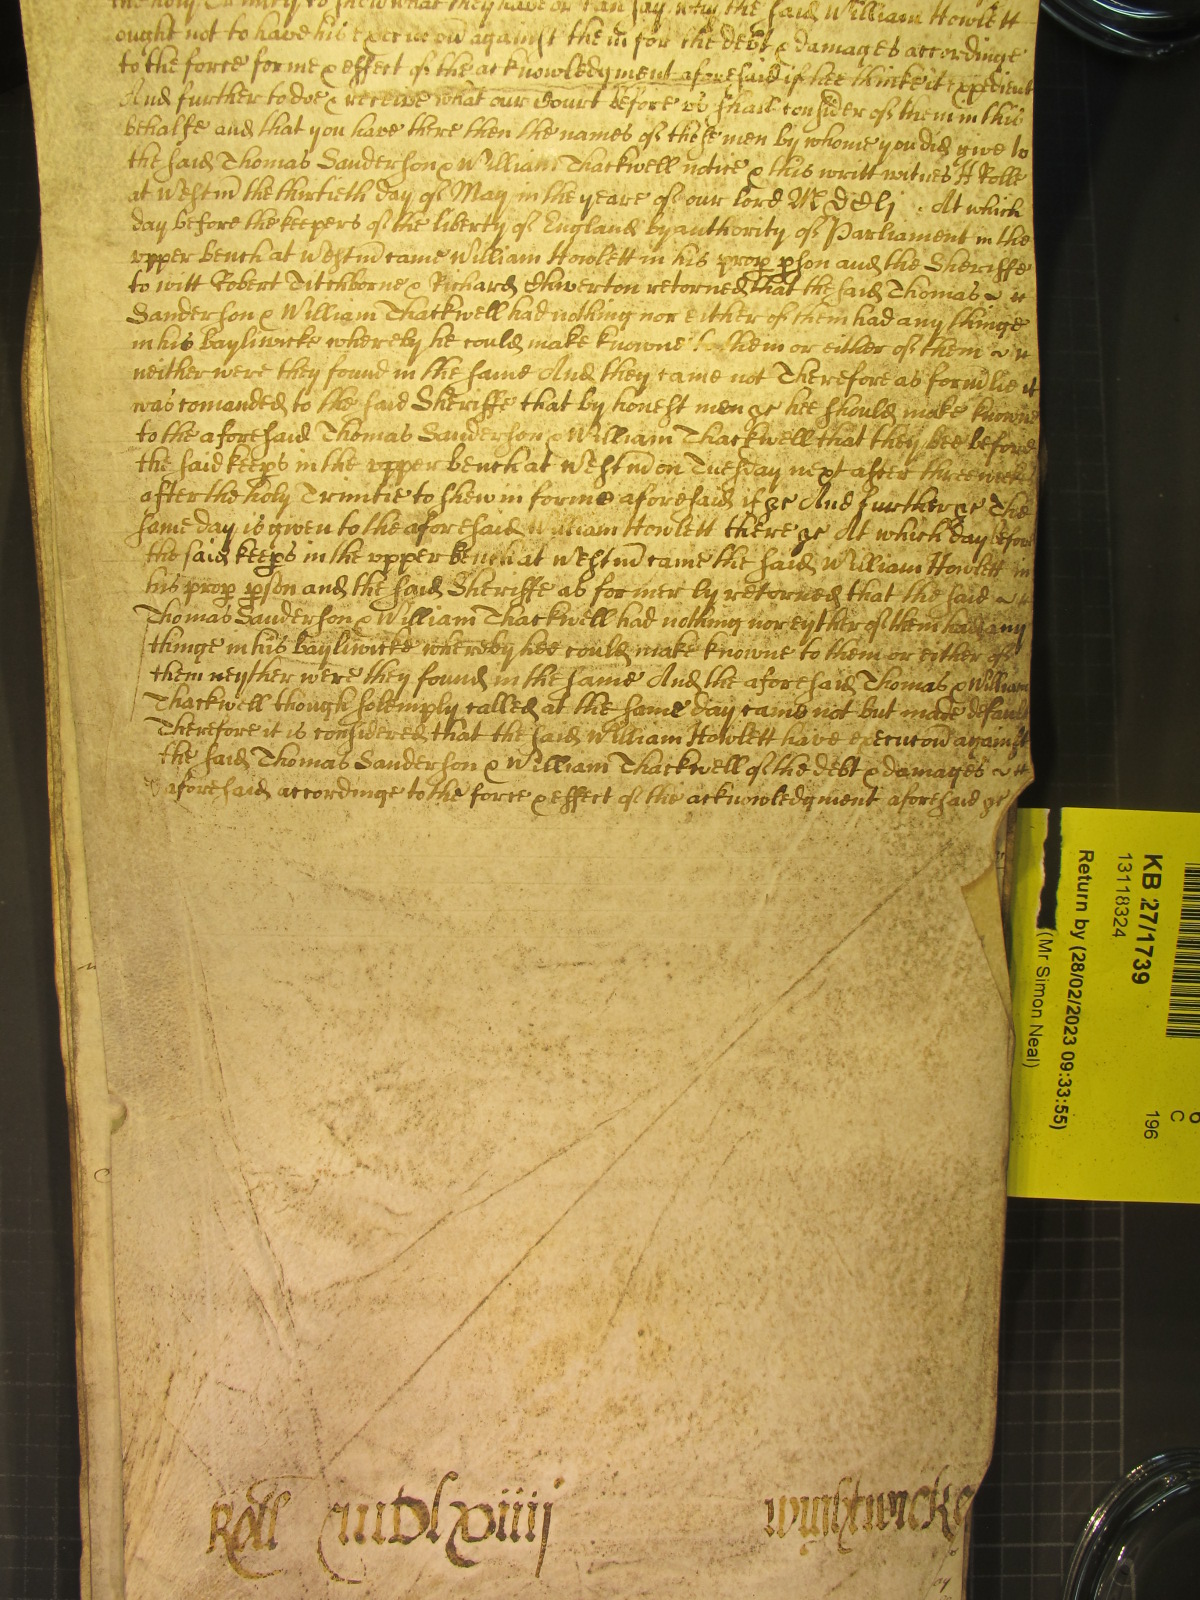 the holy Trinity to shew what they have or can say why the said William Howlett
ought not to have his execucon against them for the debt & damages accordinge
to the force forme & effect of the acknowledgment aforesaid if hee thinke it expedient
And further to doe & receive what our Court before us shall consider of them in this
behalfe and that you have there then the names of these men by whome you did give to
the said Thomas Sanderson & William Thackwell notice & this writt witnes H Rolle
at Westm the thirtieth day of May in the yeare of our lord MDCLj . At which
day before the keepers of the liberty of England by authority of Parliament in the
upper bench at Westm came William Howlett in his prop pson and the Sheriffe
to witt Robert Titchborne & Richard Chiverton returned that the said Thomas
Sanderson & William Thackwell had nothing nor either of them had any thinge
in his Bayliwicke whereby he could make knowne to them or either of them
neither were they found in the same And they came not Therefore as formlie it
was comanded to the said Sheriffe that by honest men &c hee should make knowne
to the aforesaid Thomas Sanderson & William Thackwell that they bee before
the said keeps in the upper bench at Westm on Tuesday next after three weeks
after the holy Trinitie to shew in forme aforesaid if &c And further &c The
same day is given to the aforesaid William Howlett there &c At which day before
the said keeps in the upper bench at Westm came the said William Howlett in
his prop pson and the said Sheriffe as former by returned that the said
Thomas Sanderson & William Thackwell had nothing nor eyther of them had any
thinge in his Bayliwicke whereby hee could make knowne to them or either of
them neyther were they found in the same And the aforesaid Thomas & William
Thackwell though solemply called at the same day came not but made default
Therefore it is considered that the said William Howlett have execucon against
the said Thomas Sanderson & William Thackwell of the debt & damages
aforesaid accordinge to the force & effect of the acknowledgment aforesaid &c
Roll mDlxiiij
Wightwicke
KB 27/1739
13118324
Return by (28/02/2023 09:33:55)
(Mr Simon Neal)
6
C
196